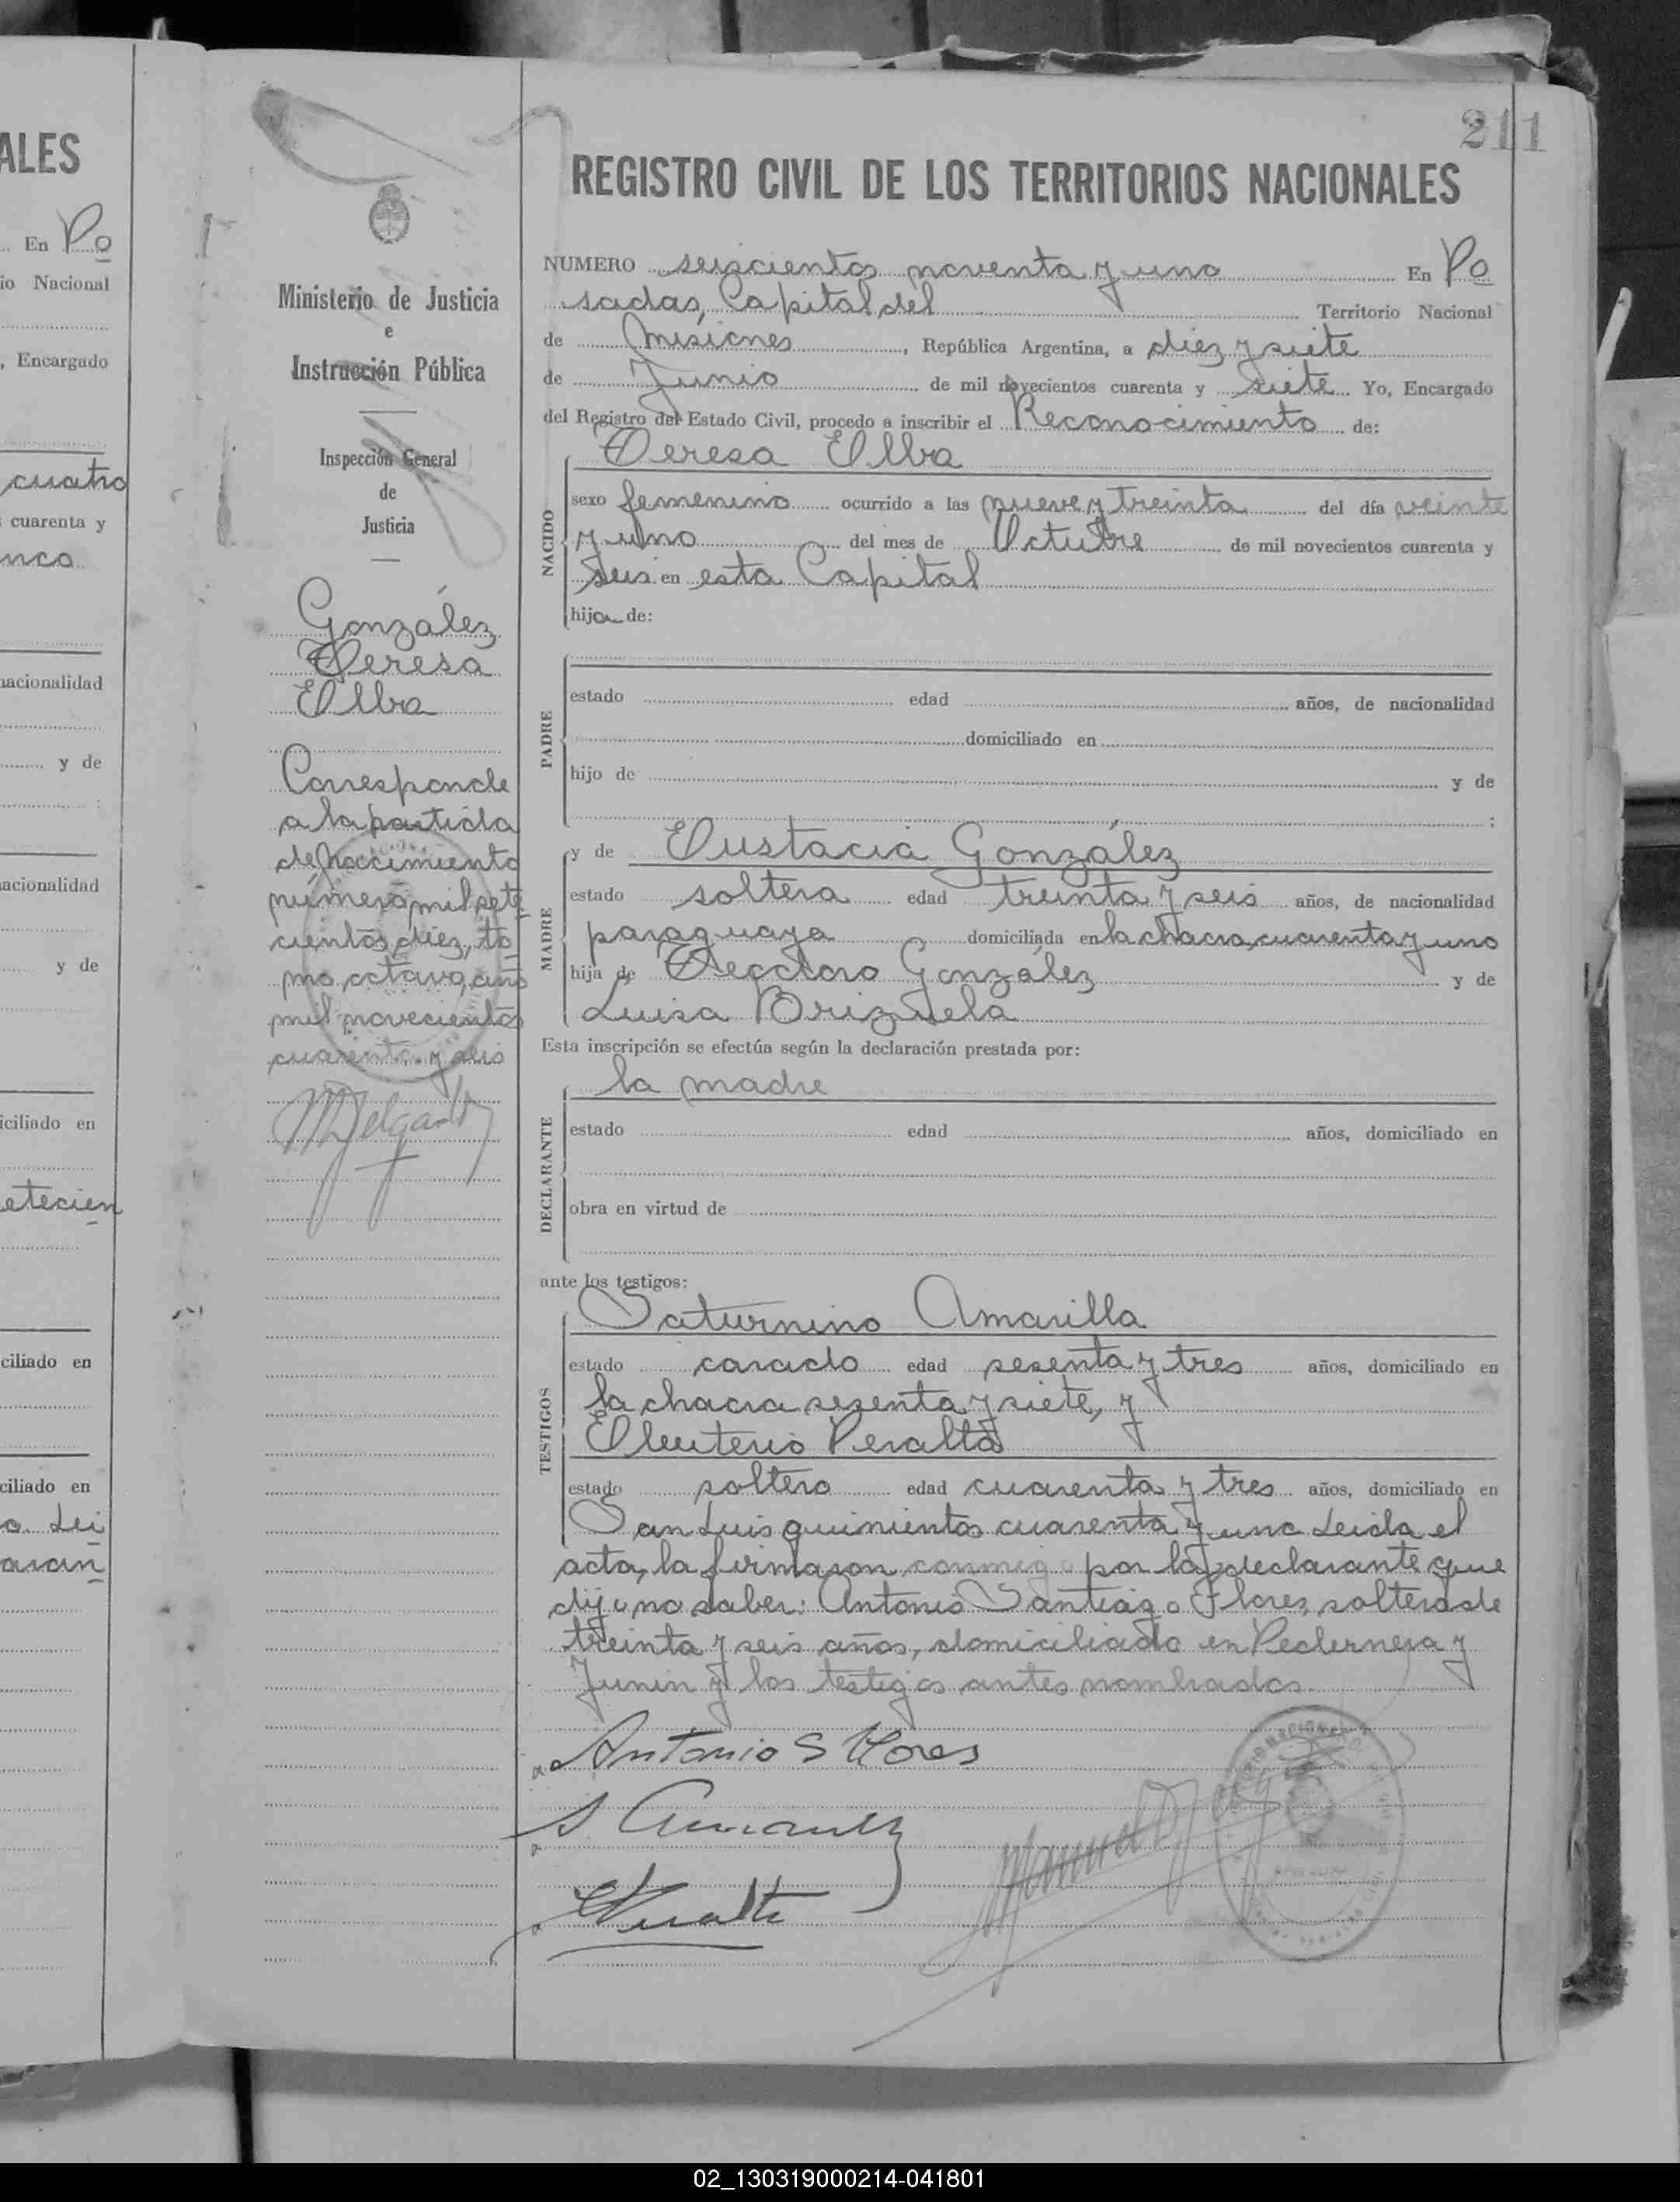 ALES
En Po
io Nacional
, Encargado
cuatro
cuarenta y
nco
nacionalidad
y de
:
nacionalidad
y de
iciliado en
etecien
ciliado en
ciliado en
o. Lei
aran
Ministerio de Justicia
e
Instrucción Pública
Inspección General
de
Justicia
González
Teresa
Elba
Corresponde
a la partida
de nacimiento
número mil sete
cientos diez, to
mo octavo, año
mil novecientos
cuarenta y seis
MDelgado
211
REGISTRO CIVIL DE LOS TERRITORIOS NACIONALES
NUMERO seiscientos noventa y uno En Po
sadas, Capital del Territorio Nacional
de Misiones, República Argentina, a diez y siete
de Junio de mil novecientos cuarenta y siete Yo, Encargado
del Registro del Estado Civil, procedo a inscribir el Reconocimiento de:
Teresa Elba
NACIDO
sexo femenino ocurrido a las nueve y treinta del día veinte
y uno del mes de Octubre de mil novecientos cuarenta y
seis en esta Capital
hija de:
PADRE
estado edad años, de nacionalidad
domiciliado en
hijo de y de
:
MADRE
y de Eustacia González
estado soltera edad treinta y seis años, de nacionalidad
paraguaya domiciliada en la chacra cuarenta y uno
hija de Teodoro González y de
Luisa Brizuela
Esta inscripción se efectúa según la declaración prestada por:
la madre
DECLARANTE
estado edad años, domiciliado en
obra en virtud de
ante los testigos:
Saturnino Amarilla
TESTIGOS
estado casado edad sesenta y tres años, domiciliado en
la chacra sesenta y siete, y
Eleuterio Peralta
estado soltero edad cuarenta y tres años, domiciliado en
San Luis quinientos cuarenta y uno Leida el
acta, la firmaron conmigo por la declarante que
dijo no saber: Antonio Santiago Flores, soltero de
treinta y seis años, domiciliado en Pedernera y
Junin y los testigos antes nombrados.
Antonio S Flores
S. Amarilla
EPeralta
02_130319000214-041801